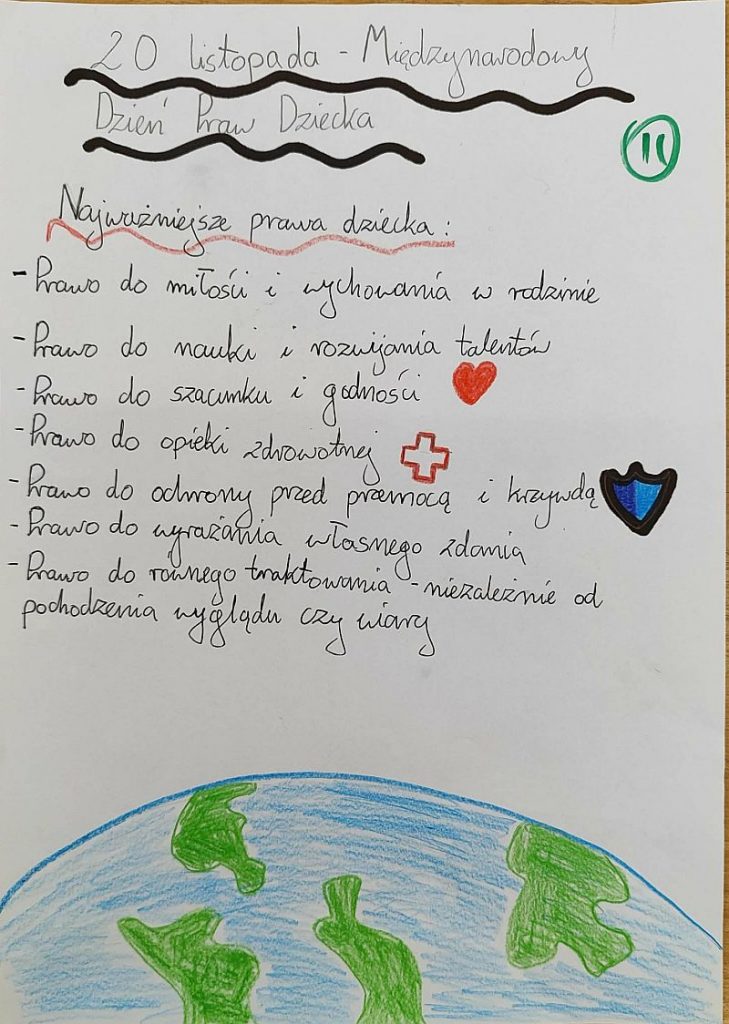 20 listopada - Międzynarodowy
Dzień Praw Dziecka
11
Najważniejsze prawa dziecka:
- Prawo do miłości i wychowania w rodzinie
- Prawo do nauki i rozwijania talentów
- Prawo do szacunku i godności
- Prawo do opieki zdrowotnej
- Prawo do ochrony przed przemocą i krzywdą
- Prawo do wyrażania własnego zdania
- Prawo do równego traktowania - niezależnie od
pochodzenia wyglądu czy wiary